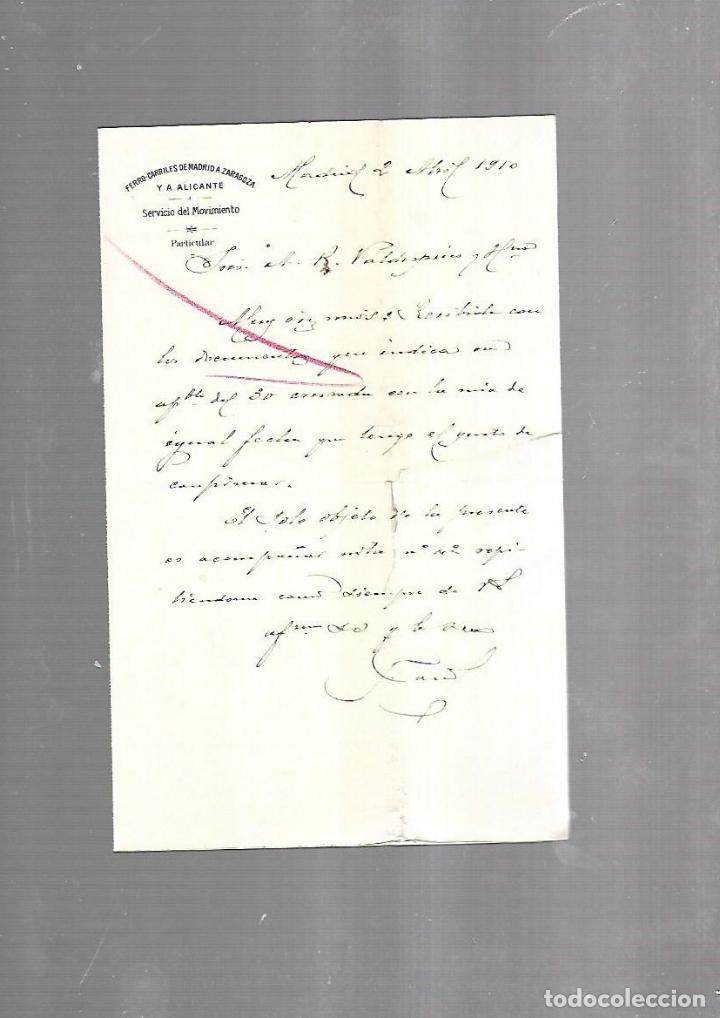 FERRO-CARRILES DE MADRID A ZARAGOZA
Y A ALICANTE
Servicio del Movimiento
Particular
Madrid 2 Abril 1910
Sres. A. R. Valdespino y Hno
Muy Recibida con
los documentos que indica su
del 30 cruzada con la mia de
igual fecha que tengo el gusto de
confirmar.
El solo objeto de la presente
es acompañar nota nº 42 repi-
tiendome como siempre de
y
todocoleccion.net